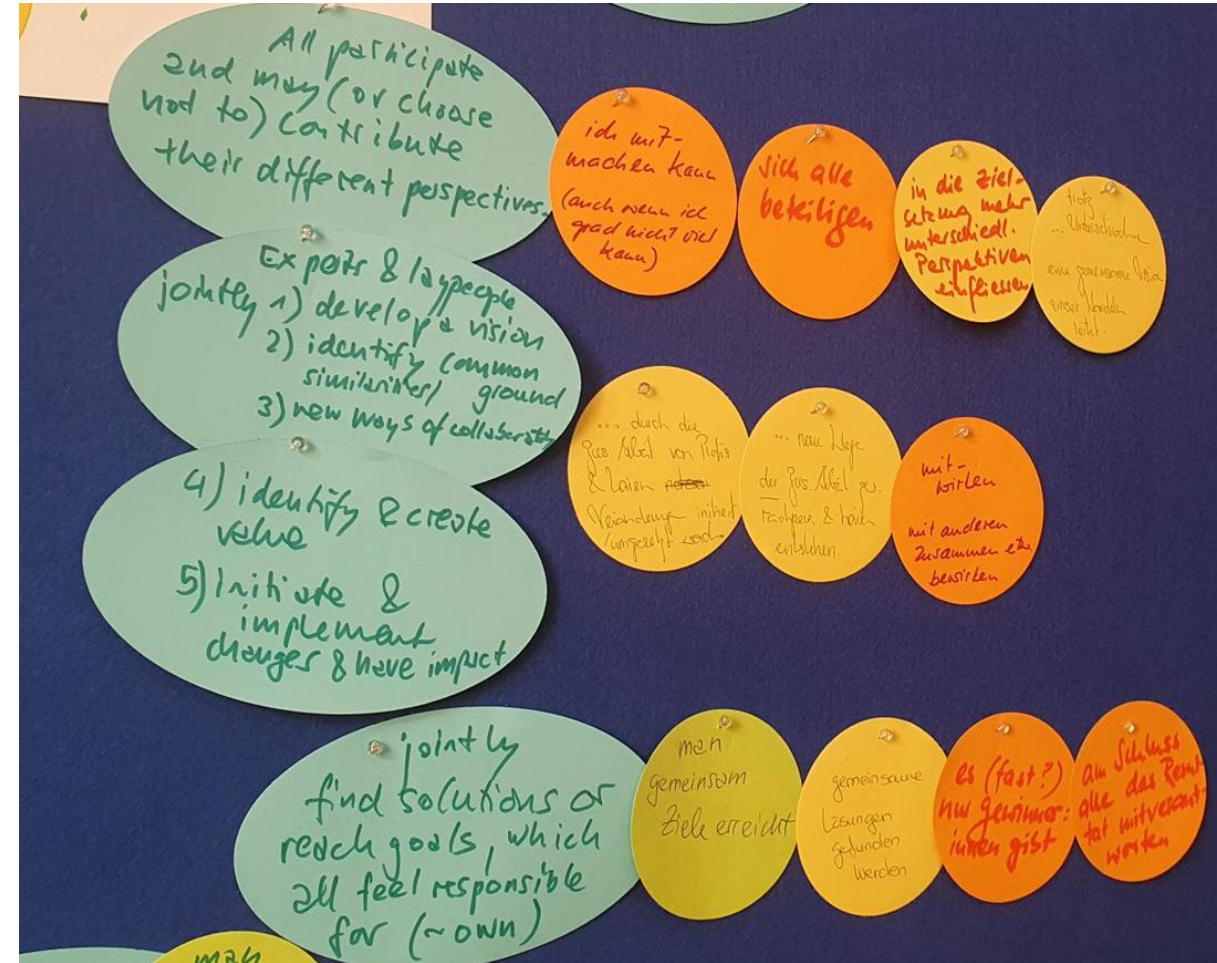 All participate
and may (or choose
not to) contribute
their different perspectives.
ich mit-
machen kann
(auch wenn ich
grad nicht viel
kann)
sich alle
beteiligen
in die Ziel-
setzung mehr
unterschiedl.
Perspektiven
einfliessen
trotz
... Unterschiede
eine gemeinsame Vision
unser Handeln
leitet.
Experts & laypeople
jointly 1) develop a vision
2) identify common
similarities/ ground
3) new ways of collaborating
... durch die
von Profis
& Laien
Veränderung initiiert
/umgesetzt
... neue Wege
der
& Laien
entstehen.
mit-
wirken
mit anderen
zusammen etw
bewirken
4) identify & create
value
5) Initiate &
implement
changes & have impact
jointly
find solutions or
reach goals, which
all feel responsible
for (~own)
man
gemeinsam
Ziele erreicht
gemeinsame
Lösungen
gefunden
werden
es (fast?)
nur gewinner:
innen gibt
am Schluss
alle das Resul-
tat mitverant-
worten
man